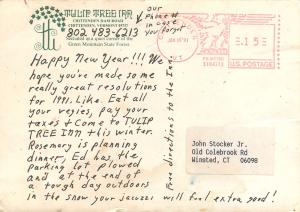 TULIP TREE INN
CHITTENDEN DAM ROAD
CHITTENDEN, VERMONT 05737
802 483-6213
Secluded in a quiet corner of the
Green Mountain State Forest
Our
Phone #
in case
you forgot
U.S. POSTAGE
Happy New Year!!! We
hope you've made some
really great resolutions
for 1991. Like. Eat all
your vegies, pay your
taxes & Come to TULIP
TREE INN this winter.
Rosemary is planning
dinner, Ed has the
parking lot plowed
and at the end of
a tough day outdoors
in the snow your jacuzzi will feel extra good!
Free directions to the Inn
John Stocker Jr.
Old Colebrook Rd
Winsted, CT 06098